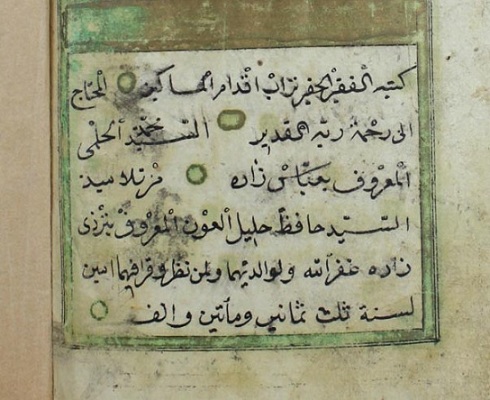 كتبه الفقير الحقير تراب اقدام المساكين المحتاج
الى رحمة ربه القدير السيد محمد الحلمى
المعروف بعباس زاده من تلاميذ
السيد حافظ خليل العون المعروف
زاده غفر الله ولوالديهما ولمن نظر وقرا فيهما امين
لسنة ثلث ثمانين ومأتين والف